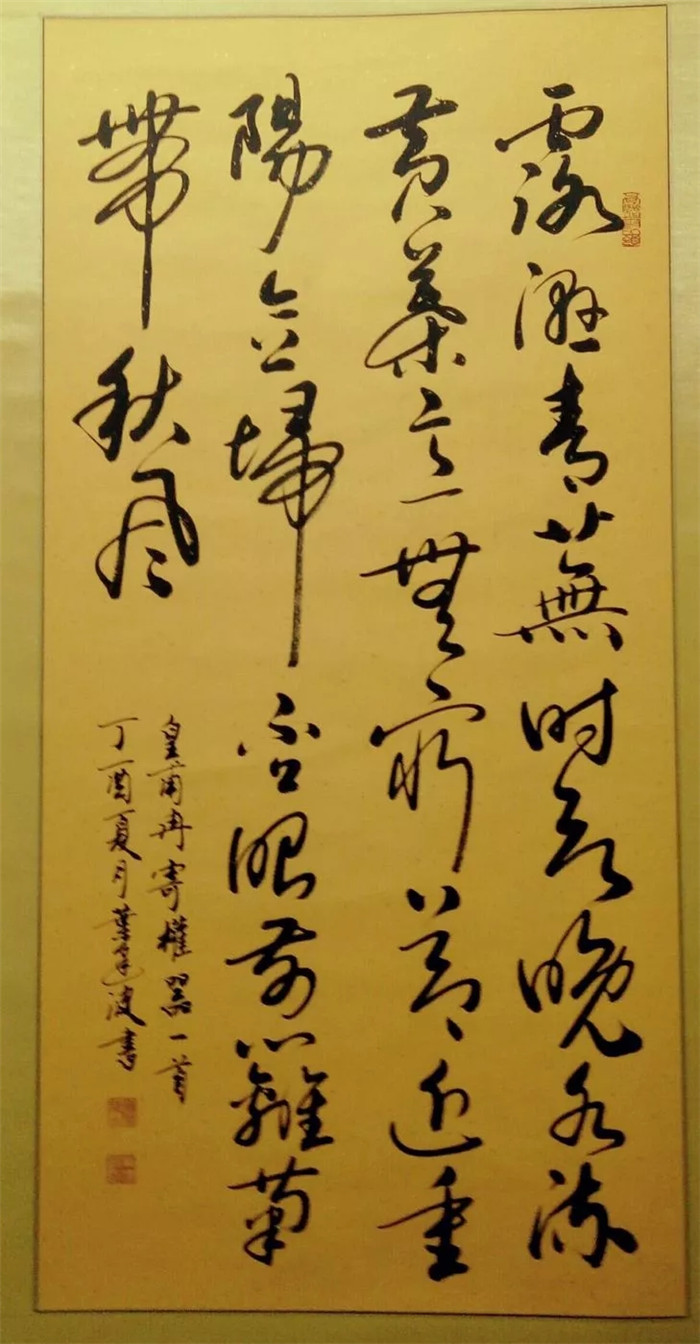 露濕青蕪时欲晚水流
黄葉意無窮節近重
陽念歸否眼前籬菊
帶秋风
皇甫冉寄權器一首
丁酉夏月葉波書